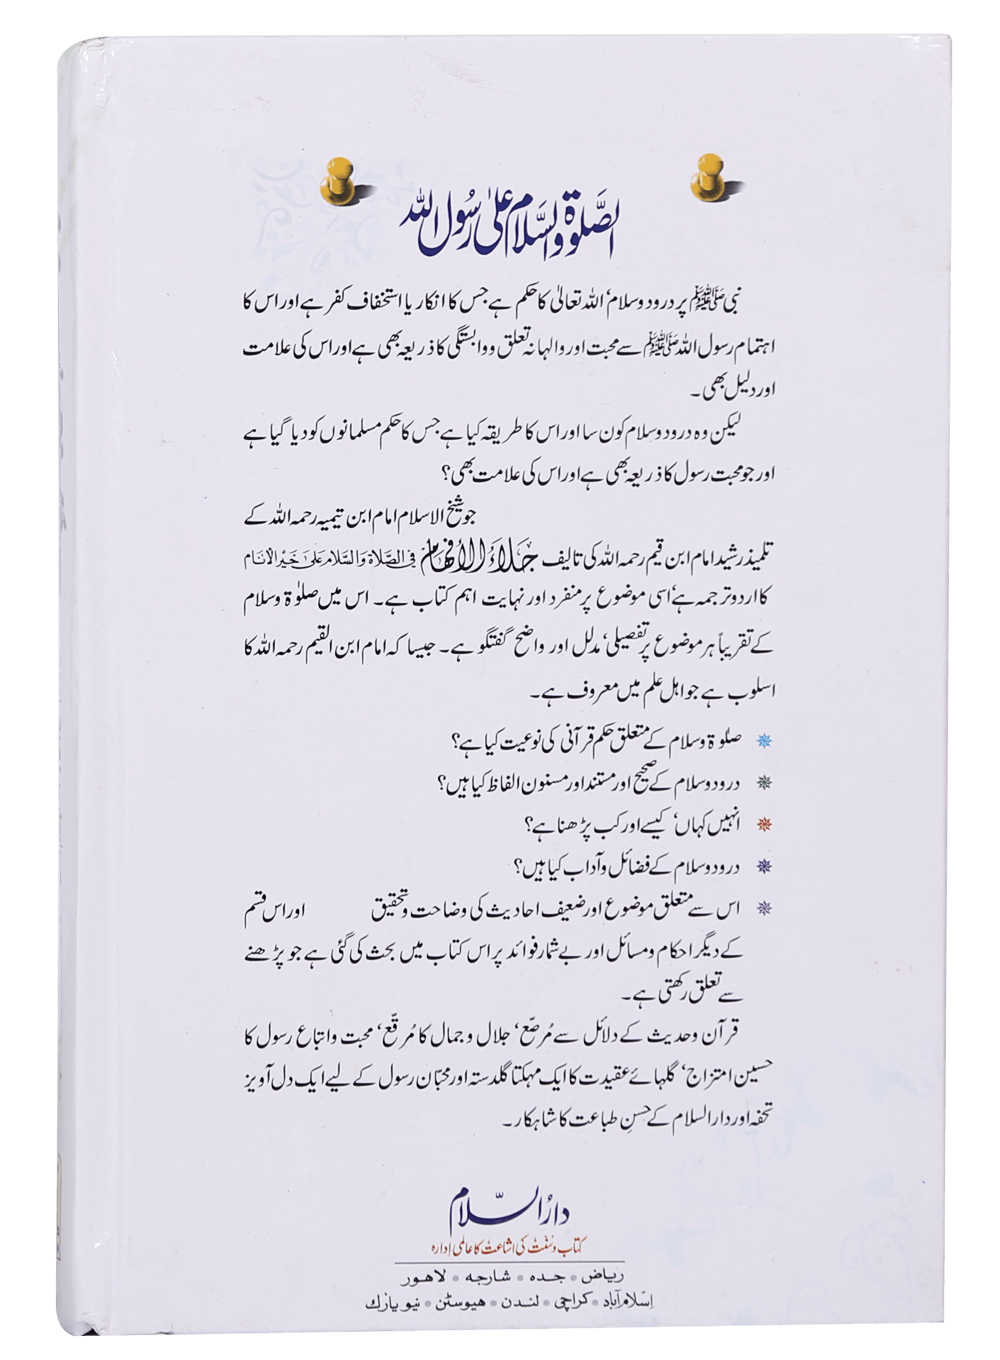 الصَّلوٰۃ والسَّلام علیٰ رسُول اللہ
نبی ﷺ پر درود وسلام‘ اللہ تعالیٰ کا حکم ہے جس کا انکار یا استخفاف کفر ہے اور اس کا
اہتمام رسول اللہ ﷺ سے محبت اور والہانہ تعلق ووابستگی کا ذریعہ بھی ہے اور اس کی علامت
اور دلیل بھی ۔
لیکن وہ درود وسلام کون سا اور اس کا طریقہ کیا ہے جس کا حکم مسلمانوں کو دیا گیا ہے
اور جو محبت رسول کا ذریعہ بھی ہے اور اس کی علامت بھی؟
جو شیخ الاسلام امام ابن تیمیہ رحمہ اللہ کے
تلمیذ رشید امام ابن قیم رحمہ اللہ کی تالیف جلاءُ الأفهام في الصَّلاة والسَّلام علىٰ خير الأنام
کا اردو ترجمہ ہے‘ اسی موضوع پر منفرد اور نہایت اہم کتاب ہے۔ اس میں صلوٰۃ وسلام
کے تقریباً ہر موضوع پر تفصیلی‘ مدلل اور واضح گفتگو ہے۔ جیسا کہ امام ابن القیم رحمہ اللہ کا
اسلوب ہے جو اہل علم میں معروف ہے۔
صلوٰۃ وسلام کے متعلق حکم قرآنی کی نوعیت کیا ہے؟
درود وسلام کے صحیح اور مستند اور مسنون الفاظ کیا ہیں؟
انہیں کہاں‘ کیسے اور کب پڑھنا ہے؟
درود وسلام کے فضائل وآداب کیا ہیں؟
اس سے متعلق موضوع اور ضعیف احادیث کی وضاحت وتحقیق اور اس قسم
کے دیگر احکام ومسائل اور بے شمار فوائد پر اس کتاب میں بحث کی گئی ہے جو پڑھنے
سے تعلق رکھتی ہے۔
قرآن وحدیث کے دلائل سے مُرصّع‘ جلال و جمال کا مُرقّع‘ محبت واتباع رسول کا
حسین امتزاج‘ گلہائے عقیدت کا ایک مہکتا گلدستہ اور محبّان رسول کے لیے ایک دل آویز
تحفہ اور دارالسلام کے حسنِ طباعت کا شاہکار۔
دارُ السّلام
کتاب وسُنّت کی اشاعت کا عالمی اِدارہ
ریاض • جدہ • شارجہ • لاہور
اِسلام آباد • کراچی • لندن • ہیوسٹن • نیو یارک